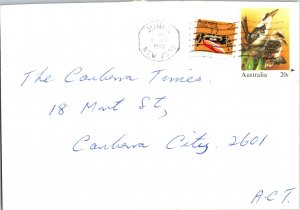 Australia 20c
The Canberra Times.
18 Mort St,
Canberra City. 2601
A.C.T.